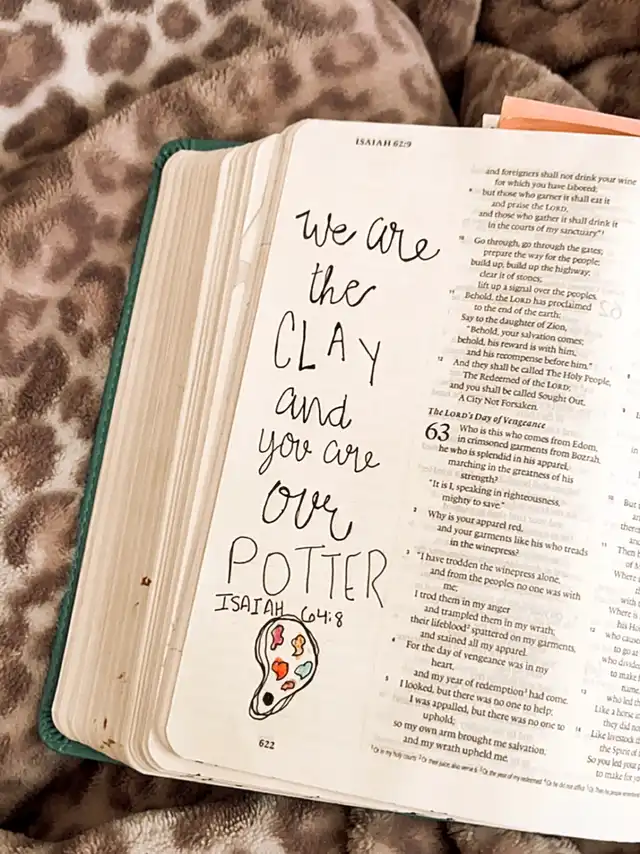 ISAIAH 62:9
we are
the
CLAY
and
you are
our
POTTER
ISAIAH 64:8
622
and foreigners shall not drink your wine
for which you have labored;
9 but those who garner it shall eat it
and praise the LORD,
and those who gather it shall drink it
in the courts of my sanctuary"¹
10 Go through, go through the gates;
prepare the way for the people;
build up, build up the highway;
clear it of stones;
lift up a signal over the peoples.
11 Behold, the LORD has proclaimed
to the end of the earth:
Say to the daughter of Zion,
"Behold, your salvation comes;
behold, his reward is with him,
and his recompense before him."
12 And they shall be called The Holy People,
The Redeemed of the LORD;
and you shall be called Sought Out,
A City Not Forsaken.
The LORD's Day of Vengeance
63 Who is this who comes from Edom,
in crimsoned garments from Bozrah,
he who is splendid in his apparel,
marching in the greatness of his
strength?
"It is I, speaking in righteousness,
mighty to save."
2 Why is your apparel red,
and your garments like his who treads
in the winepress?
3 "I have trodden the winepress alone,
and from the peoples no one was with
me;
I trod them in my anger
and trampled them in my wrath;
their lifeblood² spattered on my garments,
and stained all my apparel.
4 For the day of vengeance was in my
heart,
and my year of redemption³ had come.
5 I looked, but there was no one to help;
I was appalled, but there was no one to
uphold;
so my own arm brought me salvation,
and my wrath upheld me.